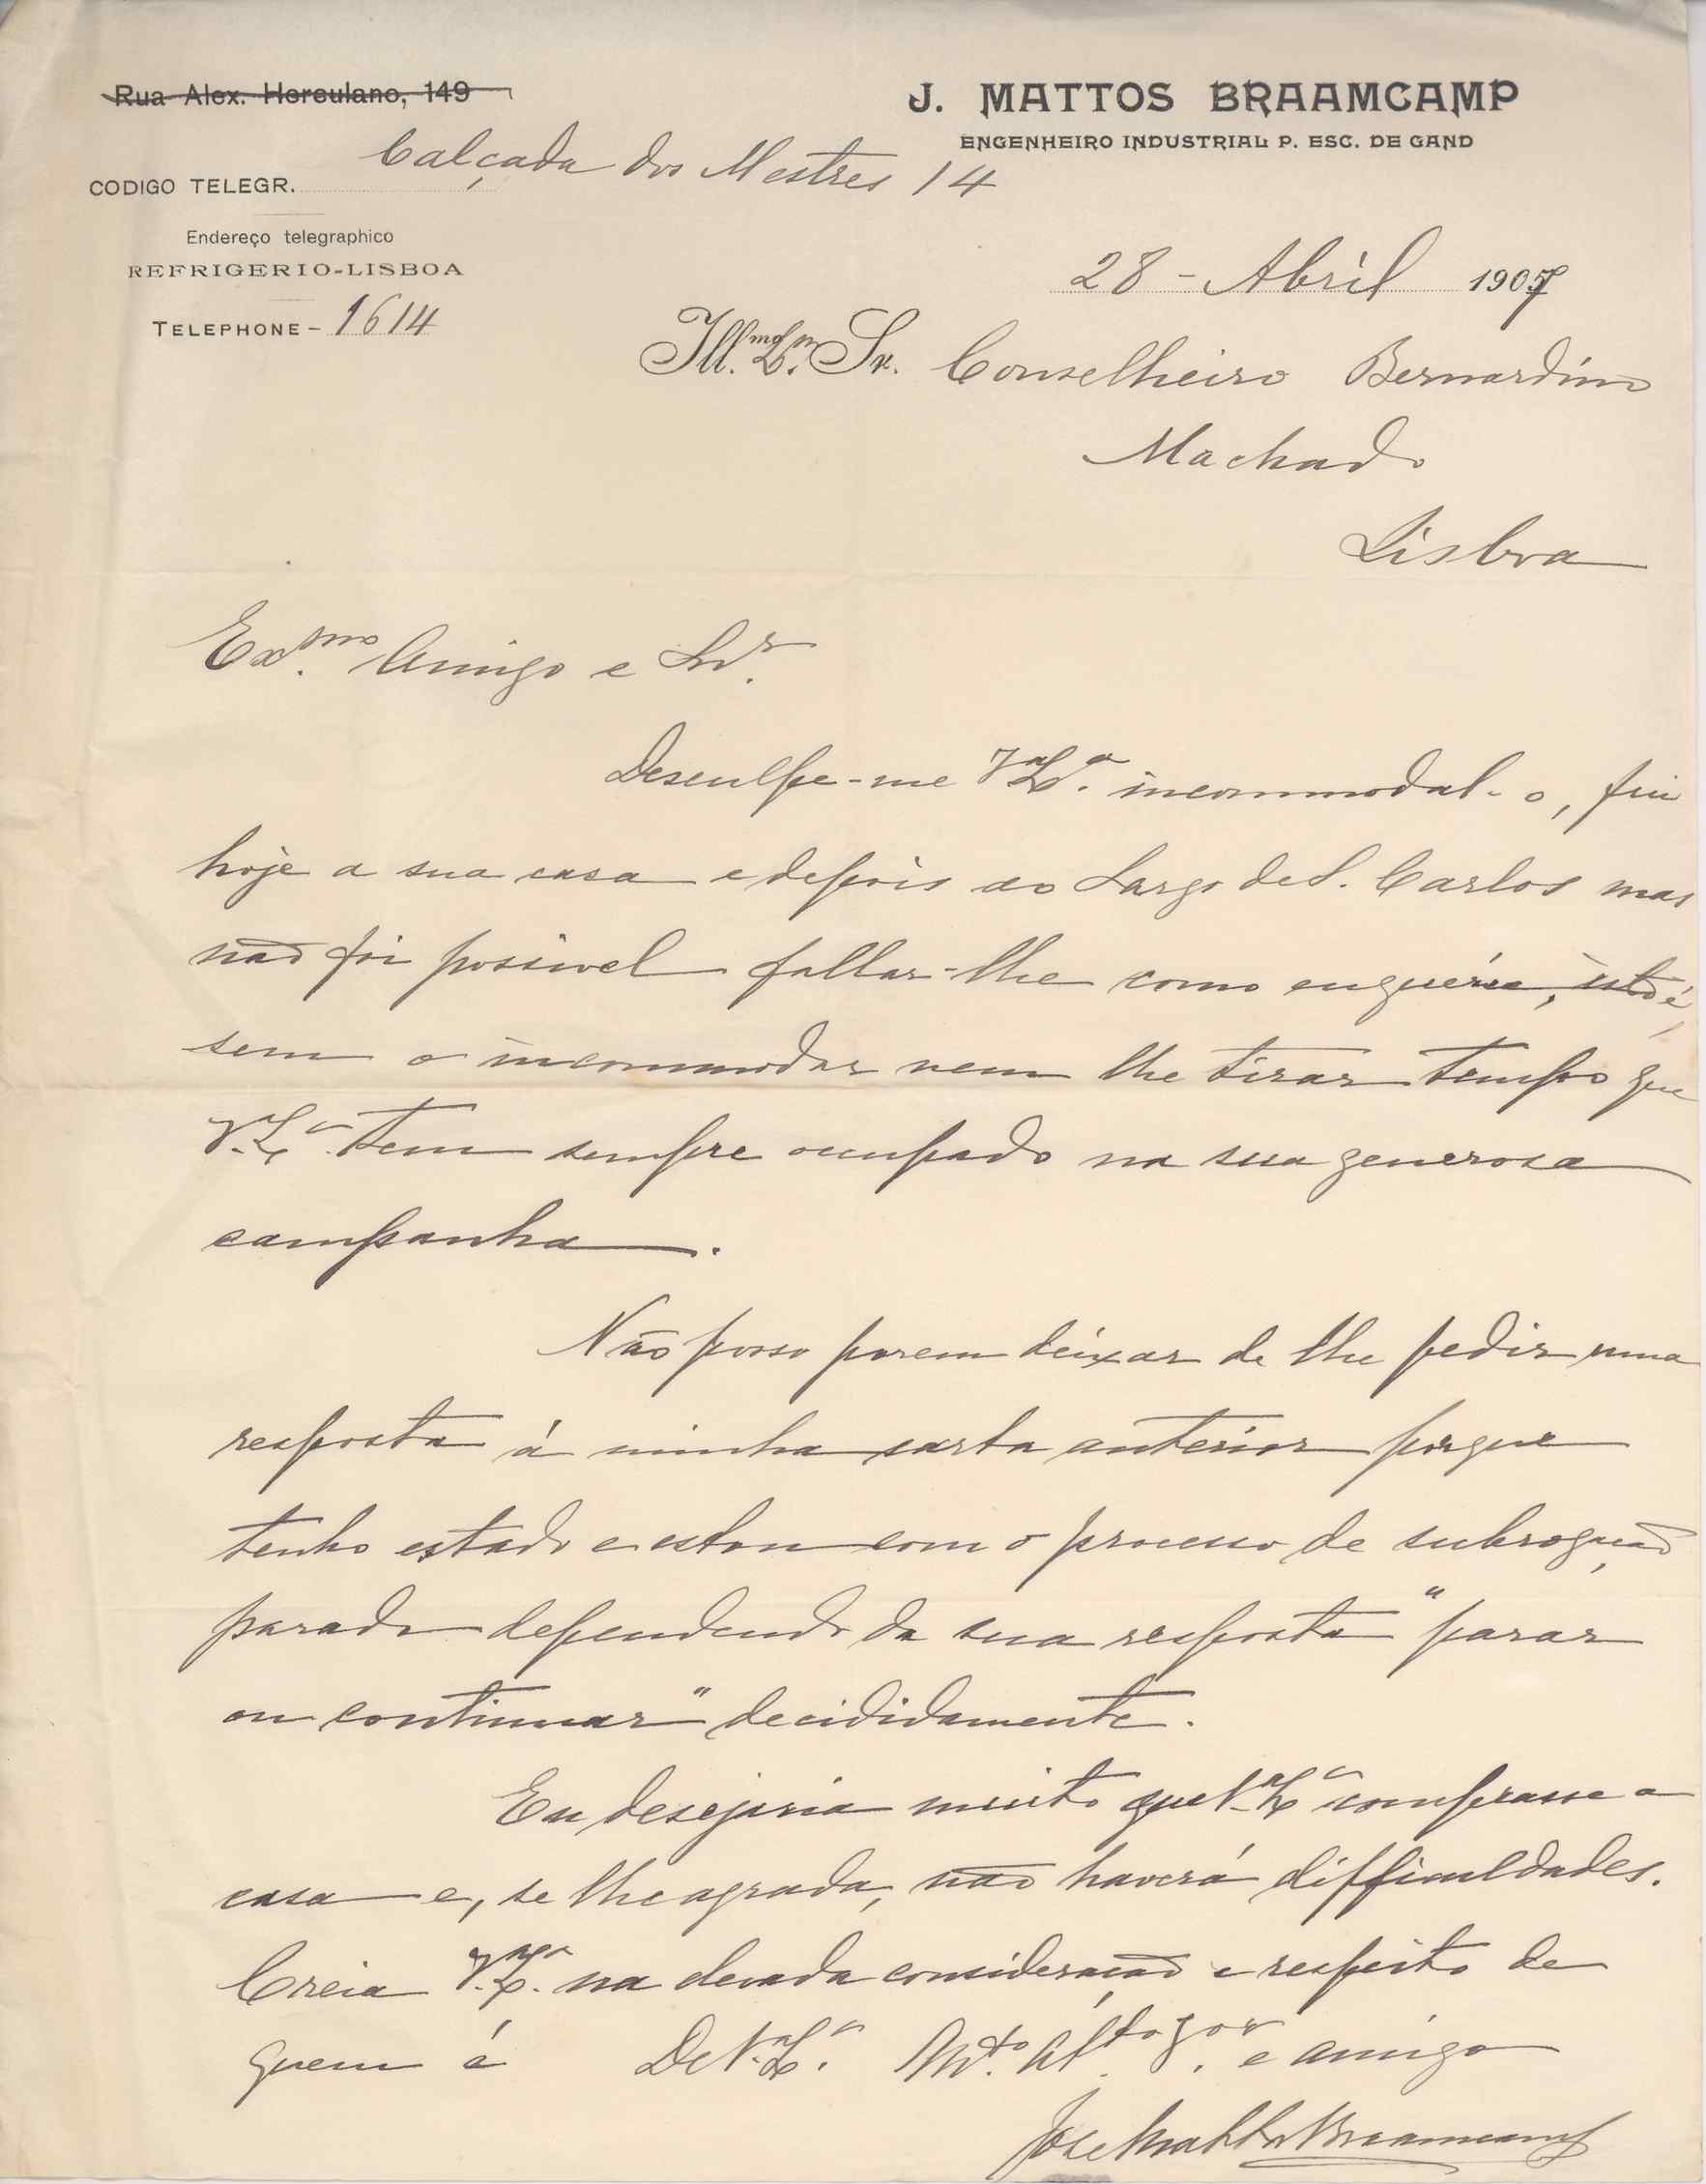 Rua Alex. Herculano, 149
J. MATTOS BRAAMCAMP
ENGENHEIRO INDUSTRIAL P. ESC. DE GAND
Calçada dos Mestres 14
CODIGO TELEGR.
Endereço telegraphico
REFRIGERIO-LISBOA
TELEPHONE - 1614
28 - Abril 1907
Ill.mo Ex.mo Sr. Conselheiro Bernardino
Machado
Lisboa
Ex.mo Amigo e Snr.
Desculpe-me V.Ex.a incommodal-o, fui
hoje a sua casa e depois ao Largo de S. Carlos mas
não foi possivel fallar-lhe como eu queria, isto é,
sem o incommodar nem lhe tirar tempo que
V.Ex.a tem sempre occupado na sua generosa
campanha.
Não posso porem deixar de lhe pedir uma
resposta á minha carta anterior porque
tenho estado e estou com o processo de subrogação
parado dependendo da sua resposta "parar
ou continuar" decididamente.
Eu desejaria muito que V.Ex.a comprasse a
casa e, se lhe agrada, não haverá difficuldades.
Creia V.Ex.a na elevada consideração e respeito de
quem é De V.Ex.a M.to At.to V.or e amigo
José Mattos Braamcamp